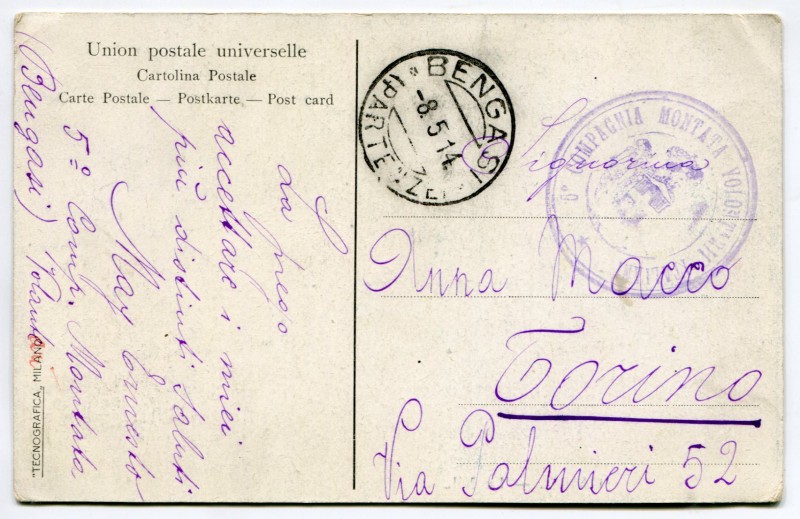 Union postale universelle
Cartolina Postale
Carte Postale — Postkarte — Post card
La prego
accettare i miei
più distinti saluti
May Ernesto
5ª Comp. Montata
(Bengasi)
"TECNOGRAFICA" MILANO
BENGASI
-8.5.14
(PARTENZE)
6ª COMPAGNIA MONTATA
Signorina
Anna Macco
Torino
Via Palmieri 52